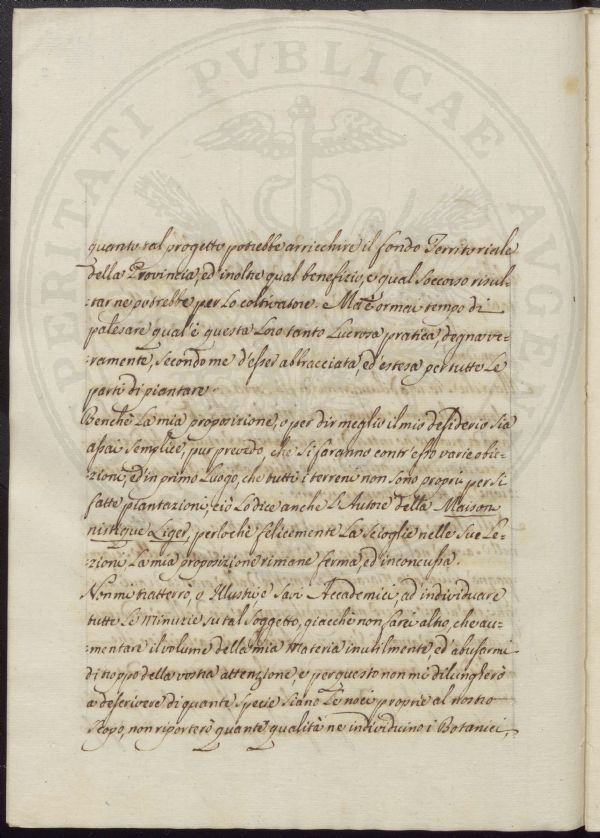 PROSPERITATI PVBLICAE AVGENDAE
quanto tal progetto potrebbe arricchire il fondo Territoriale
della Provincia, ed inoltre qual beneficio, e qual soccorso risul-
-tar ne potrebbe per lo coltivatore. Ma è ormai tempo di
palesare qual'è questa loro tanto lucrosa pratica, degna ve-
-ramente, secondo me d'esser abbracciata, ed estesa per tutte le
parti di piantare.
Benchè la mia proposizione, o per dir meglio il mio desiderio sia
assai semplice, pur prevedo, che si faranno contr'esso varie obie-
-zioni, ed in primo luogo, che tutti i terreni non sono proprii per si
fatte piantazioni, ciò lo dice anche l'Autore della Maison
rustique Liger, perlochè felicemente la scioglie nelle sue Le-
-zioni la mia proposizione rimane ferma, ed inconcussa.
Non mi tratterrò, o Illustri e Savi Accademici, ad individuare
tutte le minuzie su tal soggetto, giacchè non farei altro, che au-
-mentare il volume della mia materia inutilmente, ed abusarmi
di troppo della vostra attenzione, e per questo non mi dilungherò
a descrivere di quante specie siano le noci proprie al nostro
scopo, non riporterò quante qualità ne individuino i Botanici,